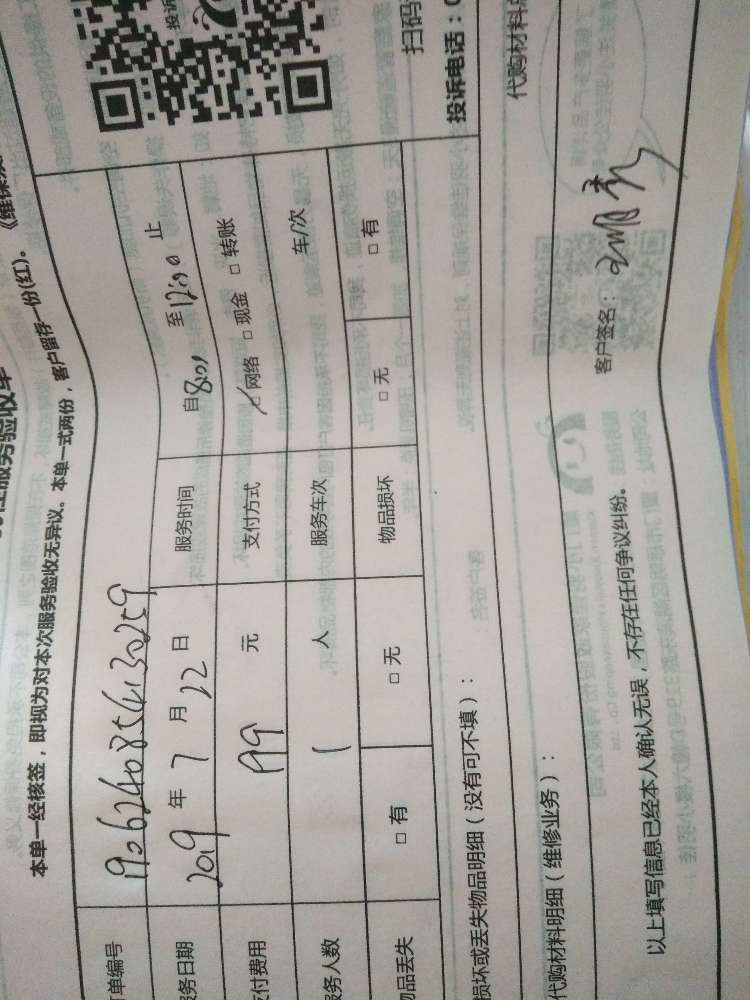 性服务验收单
本单一经核签，即视为对本次服务验收无异议。本单一式两份，客户留存一份(红)。
单编号 1906240854130259
务日期 2019 年 7 月 22 日 服务时间 自 8:00 至 12:00 止
付费用 199 元 支付方式 □网络 □现金 □转账
务人数 1 人 服务车次 车/次
品丢失 □有 □无 物品损坏 □无 □有
损坏或丢失物品明细（没有可不填）：
投诉
扫码
投诉电话：0
代购材料明细（维修业务）：
代购材料总
以上填写信息已经本人确认无误，不存在任何争议纠纷。
客户签名：